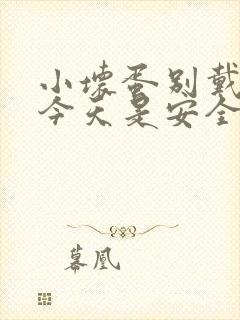 小坏蛋别戴
今天是安全
幕凰